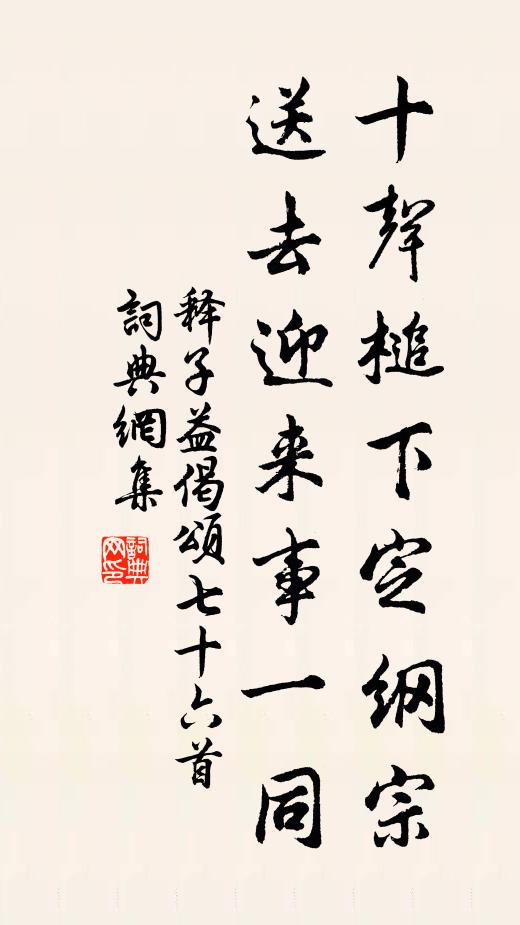 十聲槌下定綱宗
送去迎来事一同
释子益偈頌七十六首
詞典網集
詞典网印